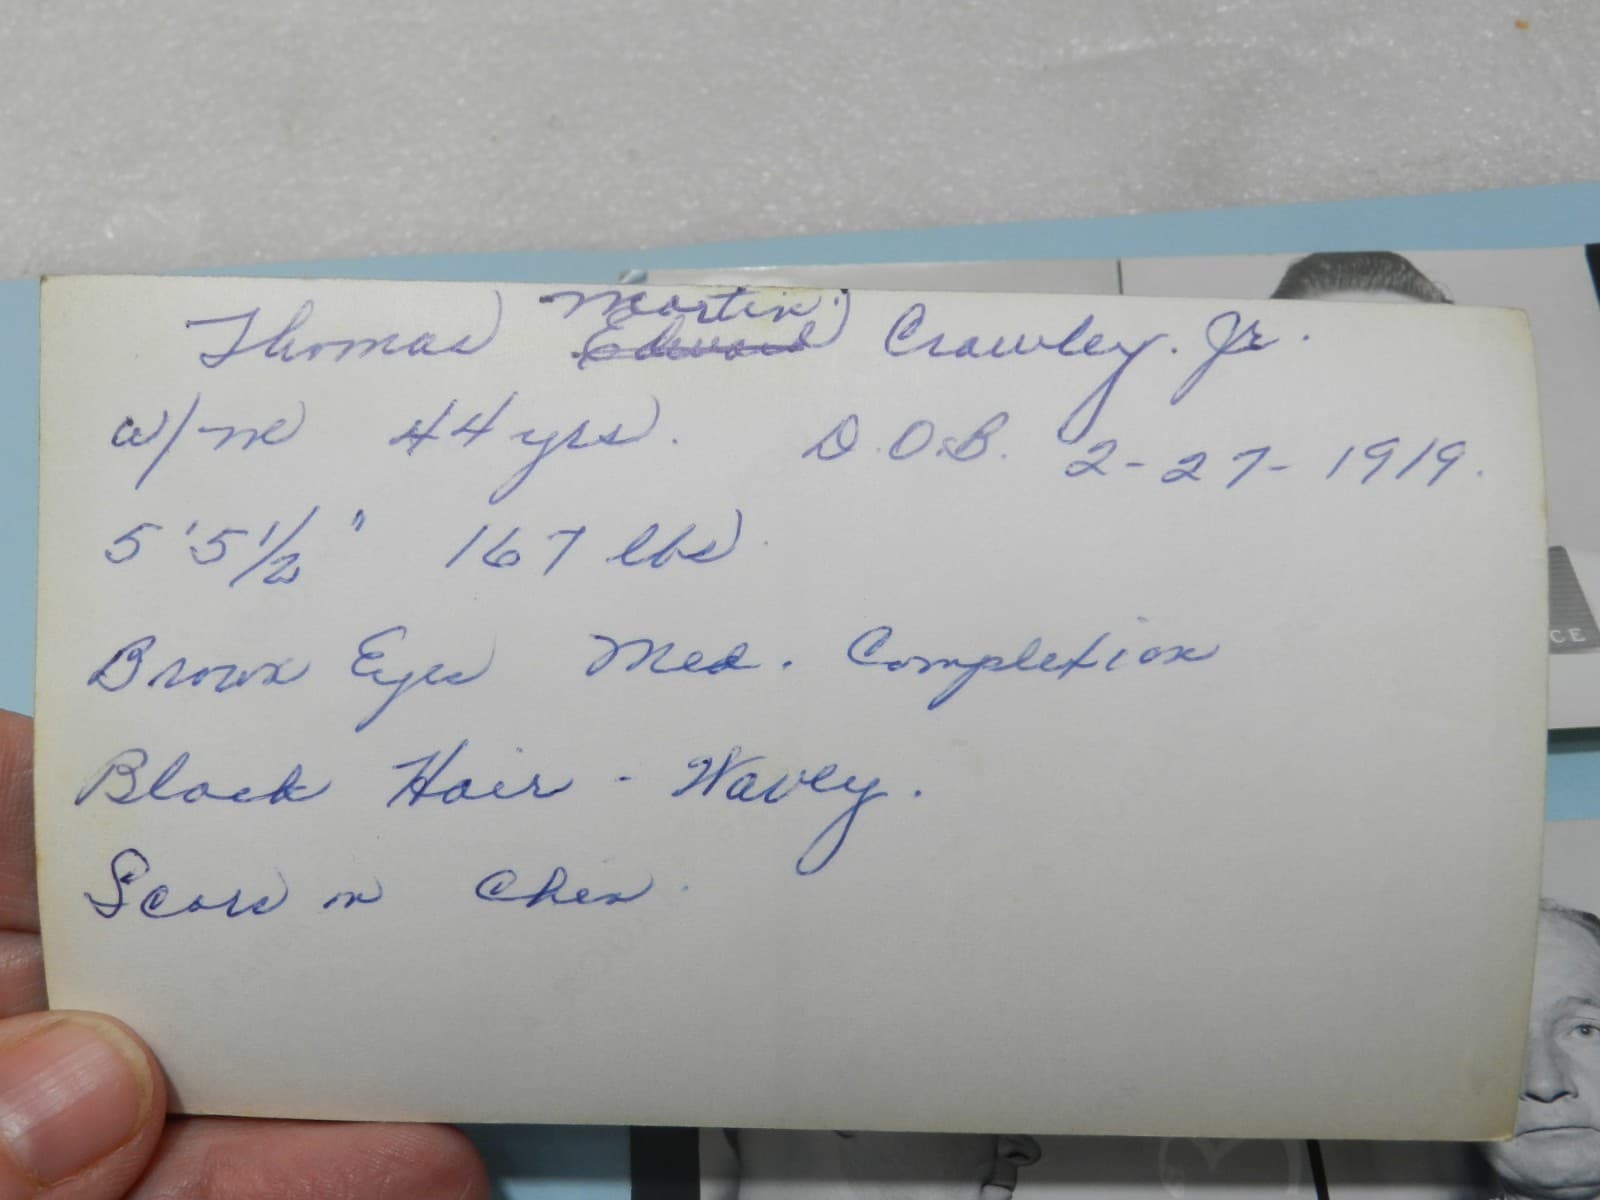 Thomas Martin Edward Crawley. Jr.
W/M 44 yrs. D.O.B. 2-27-1919.
5'5 1/2" 167 lbs.
Brown Eyes Med. Completion
Black Hair - Wavey.
Scars on Chin.
CE